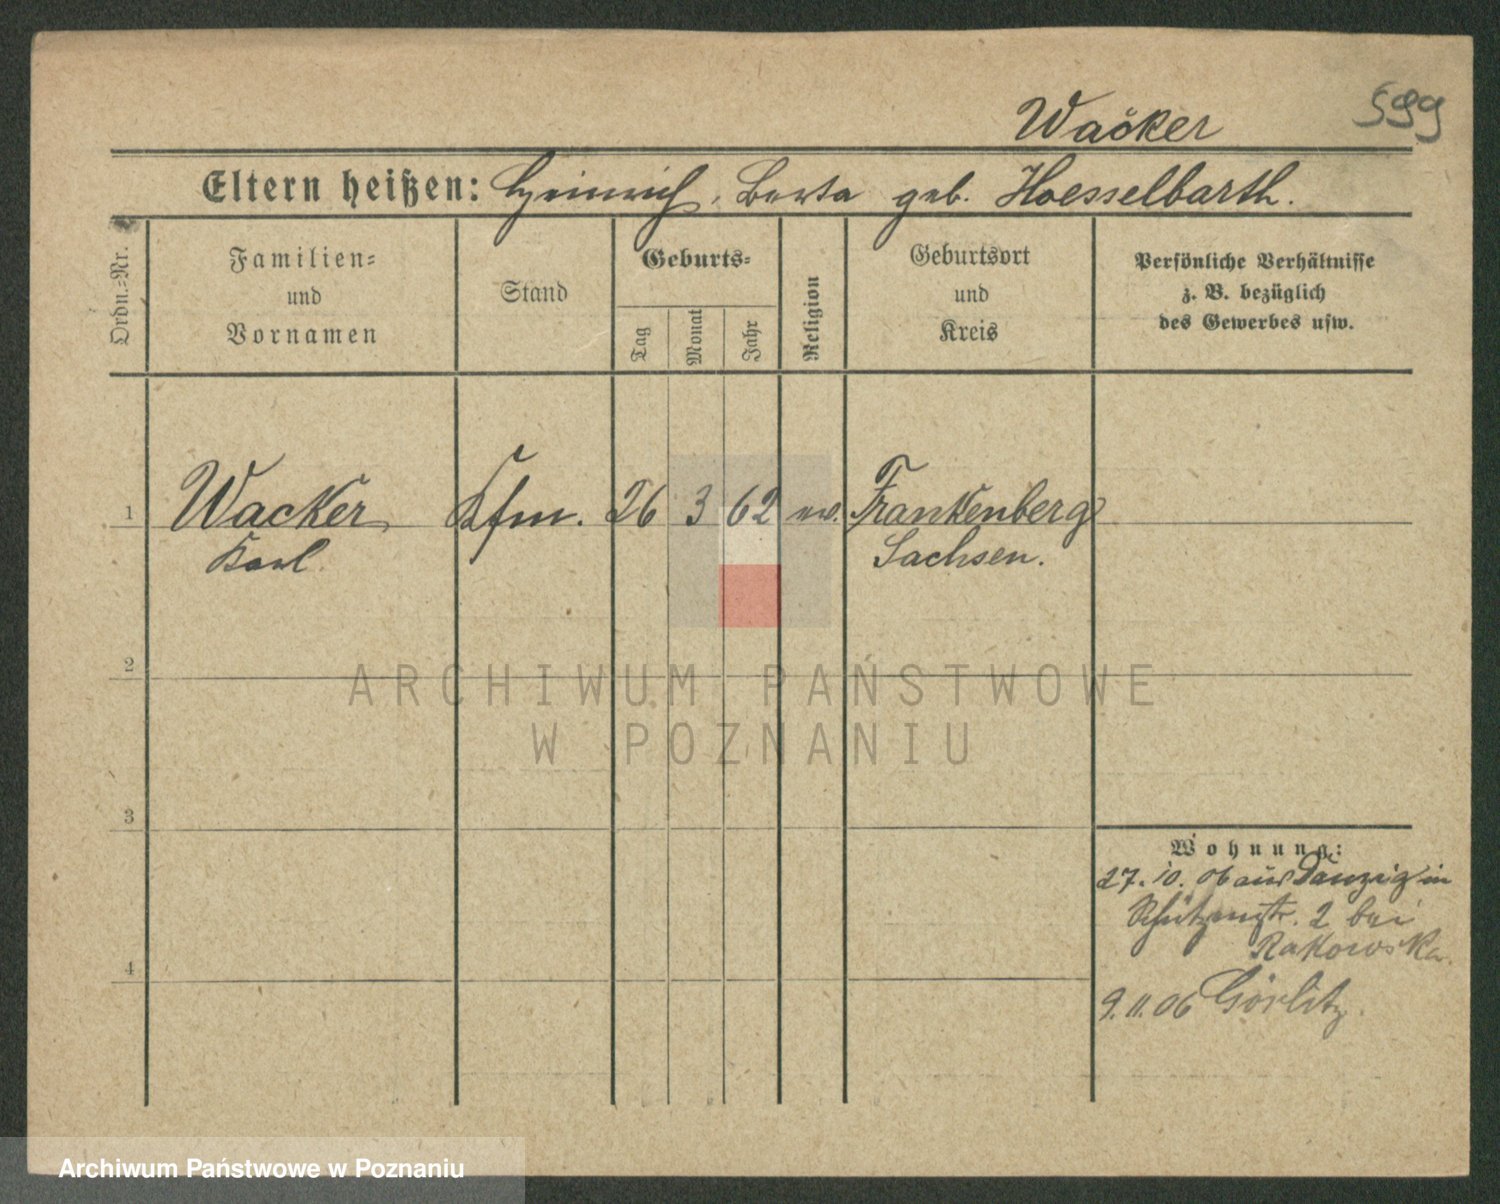 599
Wacker
Eltern heißen: Heinrich, Berta geb. Hoesselbarth.
Ordn.-Nr.
Familien- und Vornamen
Stand
Geburts-
Tag
Monat
Jahr
Religion
Geburtsort und Kreis
Persönliche Verhältnisse
z. B. bezüglich
des Gewerbes usw.
1 Wacker Kfm. 26 3 62 ev. Frankenberg
Karl Sachsen.
2
3
4
Wohnung:
27. 10. 06 aus Danzig in
Schützenstr. 2 bei
Rakowska.
9. 11. 06 Görlitz.
ARCHIWUM PAŃSTWOWE
W POZNANIU
Archiwum Państwowe w Poznaniu